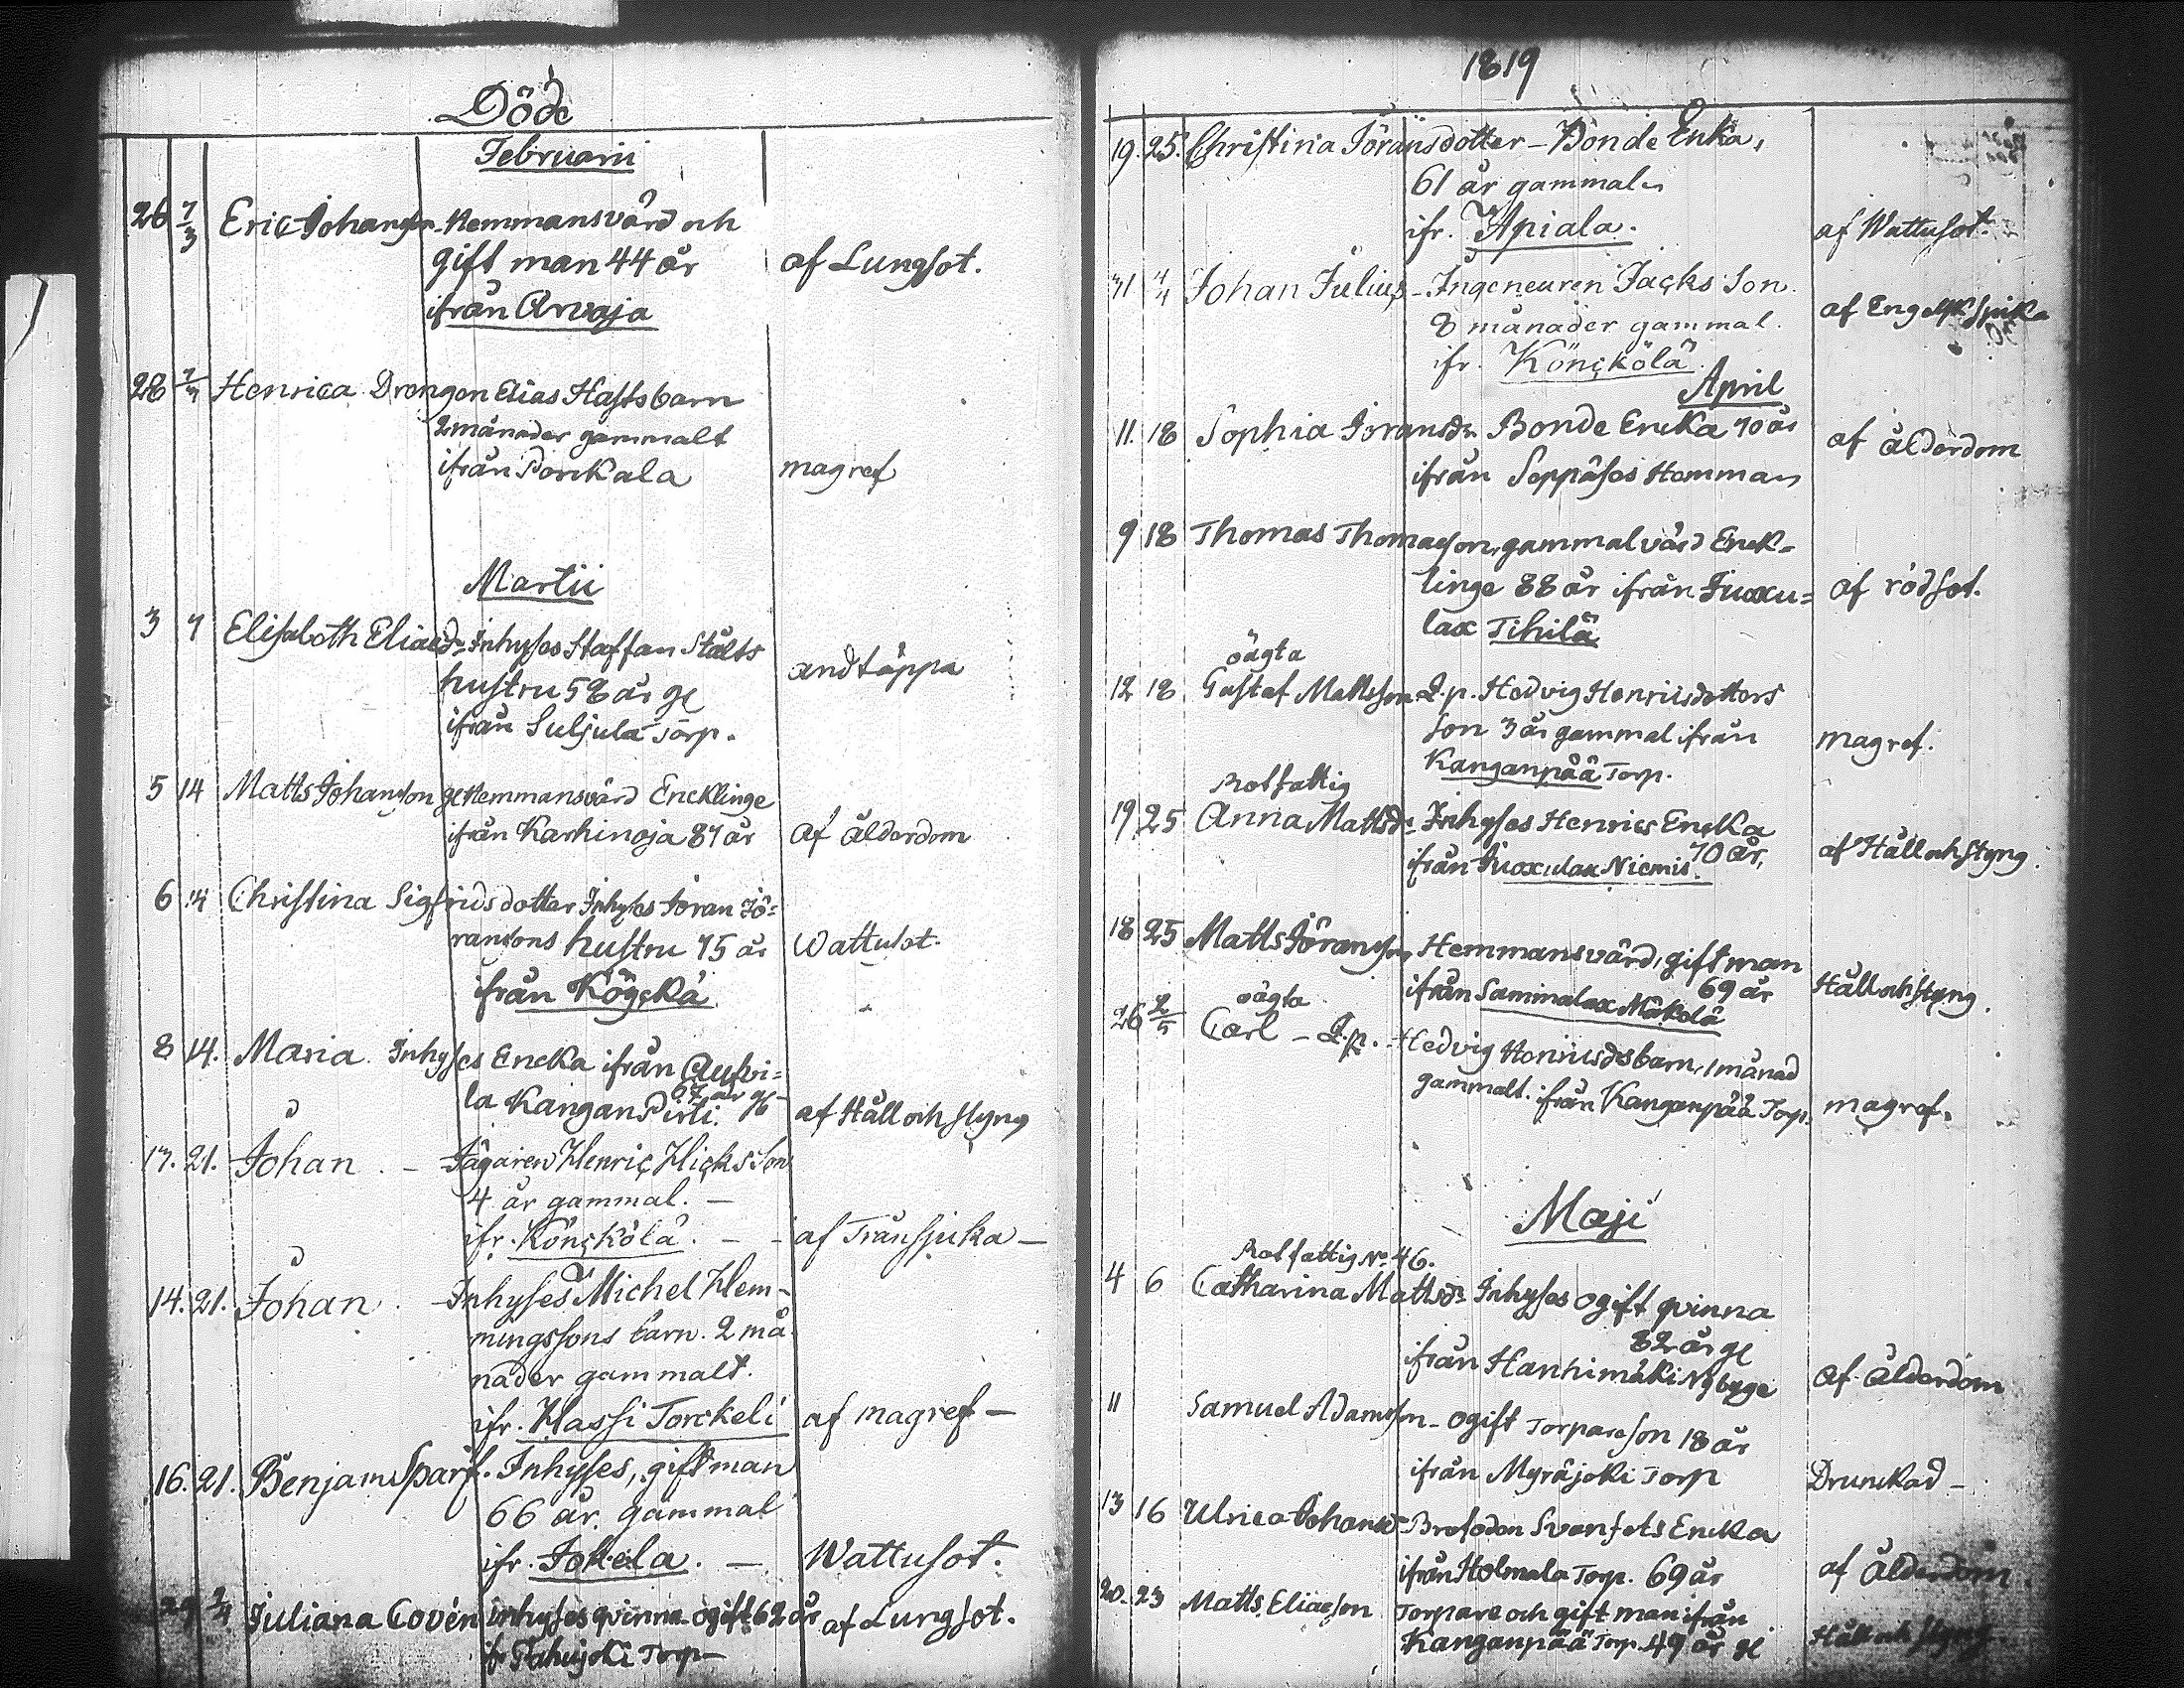 Döde
Februarii
26 7/3 Eric Johansson Hemmansvärd och
gift man 44 år af Lungsot.
ifrån Arvaja
28 7/3 Henrica Drengen Elias Hasts barn
2 månader gammalt
ifrån Porckala magref
Martii
3 7 Elisabeth Eliaed:r Inhyses Staffan Stålts
hustru 58 år gl andtäppa
ifrån Suljula Torp.
5 14 Matts Johansson gl Hemmansvärd Encklinge
ifrån Karhinoja 87 år af ålderdom
6 14 Christina Sigfridsdotter Inhyses Jöran Jö-
ransons hustru 75 år Wattusot.
ifrån Kögckä
8 14. Maria Inhyses Encka ifrån Aufvi-
67 år gl
la Kangan Pirti. af Håll och Styng
13. 21. Johan. – Jägaren Henric Hicks Son
4 år gammal. –
ifr. Könckölä. – – af Trånsjuka –
14. 21. Johan. – Inhyses Michel Hem-
mingssons barn. 2 må-
nader gammalt.
ifr. Hassi Torckeli af magref –
16. 21. Benjam Sparf. Inhyses, gift man
66 år. gammal
ifr. Jokela. – Wattusot.
29 2/4 Juliana Covén inhyses qvinna ogift 62 år af Lungsot.
ifr Torp –
1819
19. 25. Christina Jöransdotter – Bonde Enka,
61 år gammal
ifr. Apiala. af Wattusot.
31 4/4 Johan Julius – Ingeneuren Jacks Son.
8 månader gammal. af Engelsk Sjuka
ifr. Könckölä.
April
11. 18 Sophia Joransd:r Bonde Encka 70 år af ålderdom
ifrån Seppäses Hemman
9 18 Thomas Thomasson, gammal värd Enck-
linge 88 år ifrån Juoxu- af rödsot.
lax Tihilä
oägta
12 18 Gustaf Mattsson Q.p. Hedvig Henricsdotters
Son 3 år gammal ifrån magref.
Kanganpää Torp.
Rotfattig
19 25 Anna Mattsd:r Inhyses Henrics Encka
70 år, af Håll och Styng.
ifrån Juoxulax Niemis.
18 25 Matts Jöransson Hemmansvärd, gift man
69 år Håll och Styng.
ifrån Sammalax Mäkelä
oägta
26 2/5 Carl – Q.p. Hedvig Henricsd:s barn, 1 månad
gammalt. ifrån Kanganpää Torp. magref.
Maji
Rotfattig No. 46.
4 6 Catharina Mattsd:r Inhyses ogift qvinna
82 år gl
ifrån Hanhimäki Nybyge af ålderdom
11 Samuel Adamsson – ogift Torpare son 18 år
ifrån Myräjoki Torp Drunckad –
13 16 Ulrica Johansd:r Svanfelts Encka
ifrån Holmala Torp. 69 år af ålderdom
20. 23 Matts Eliaeson Torpare och gift man ifrån
Kanganpää Torp. 49 år gl Håll och Styng